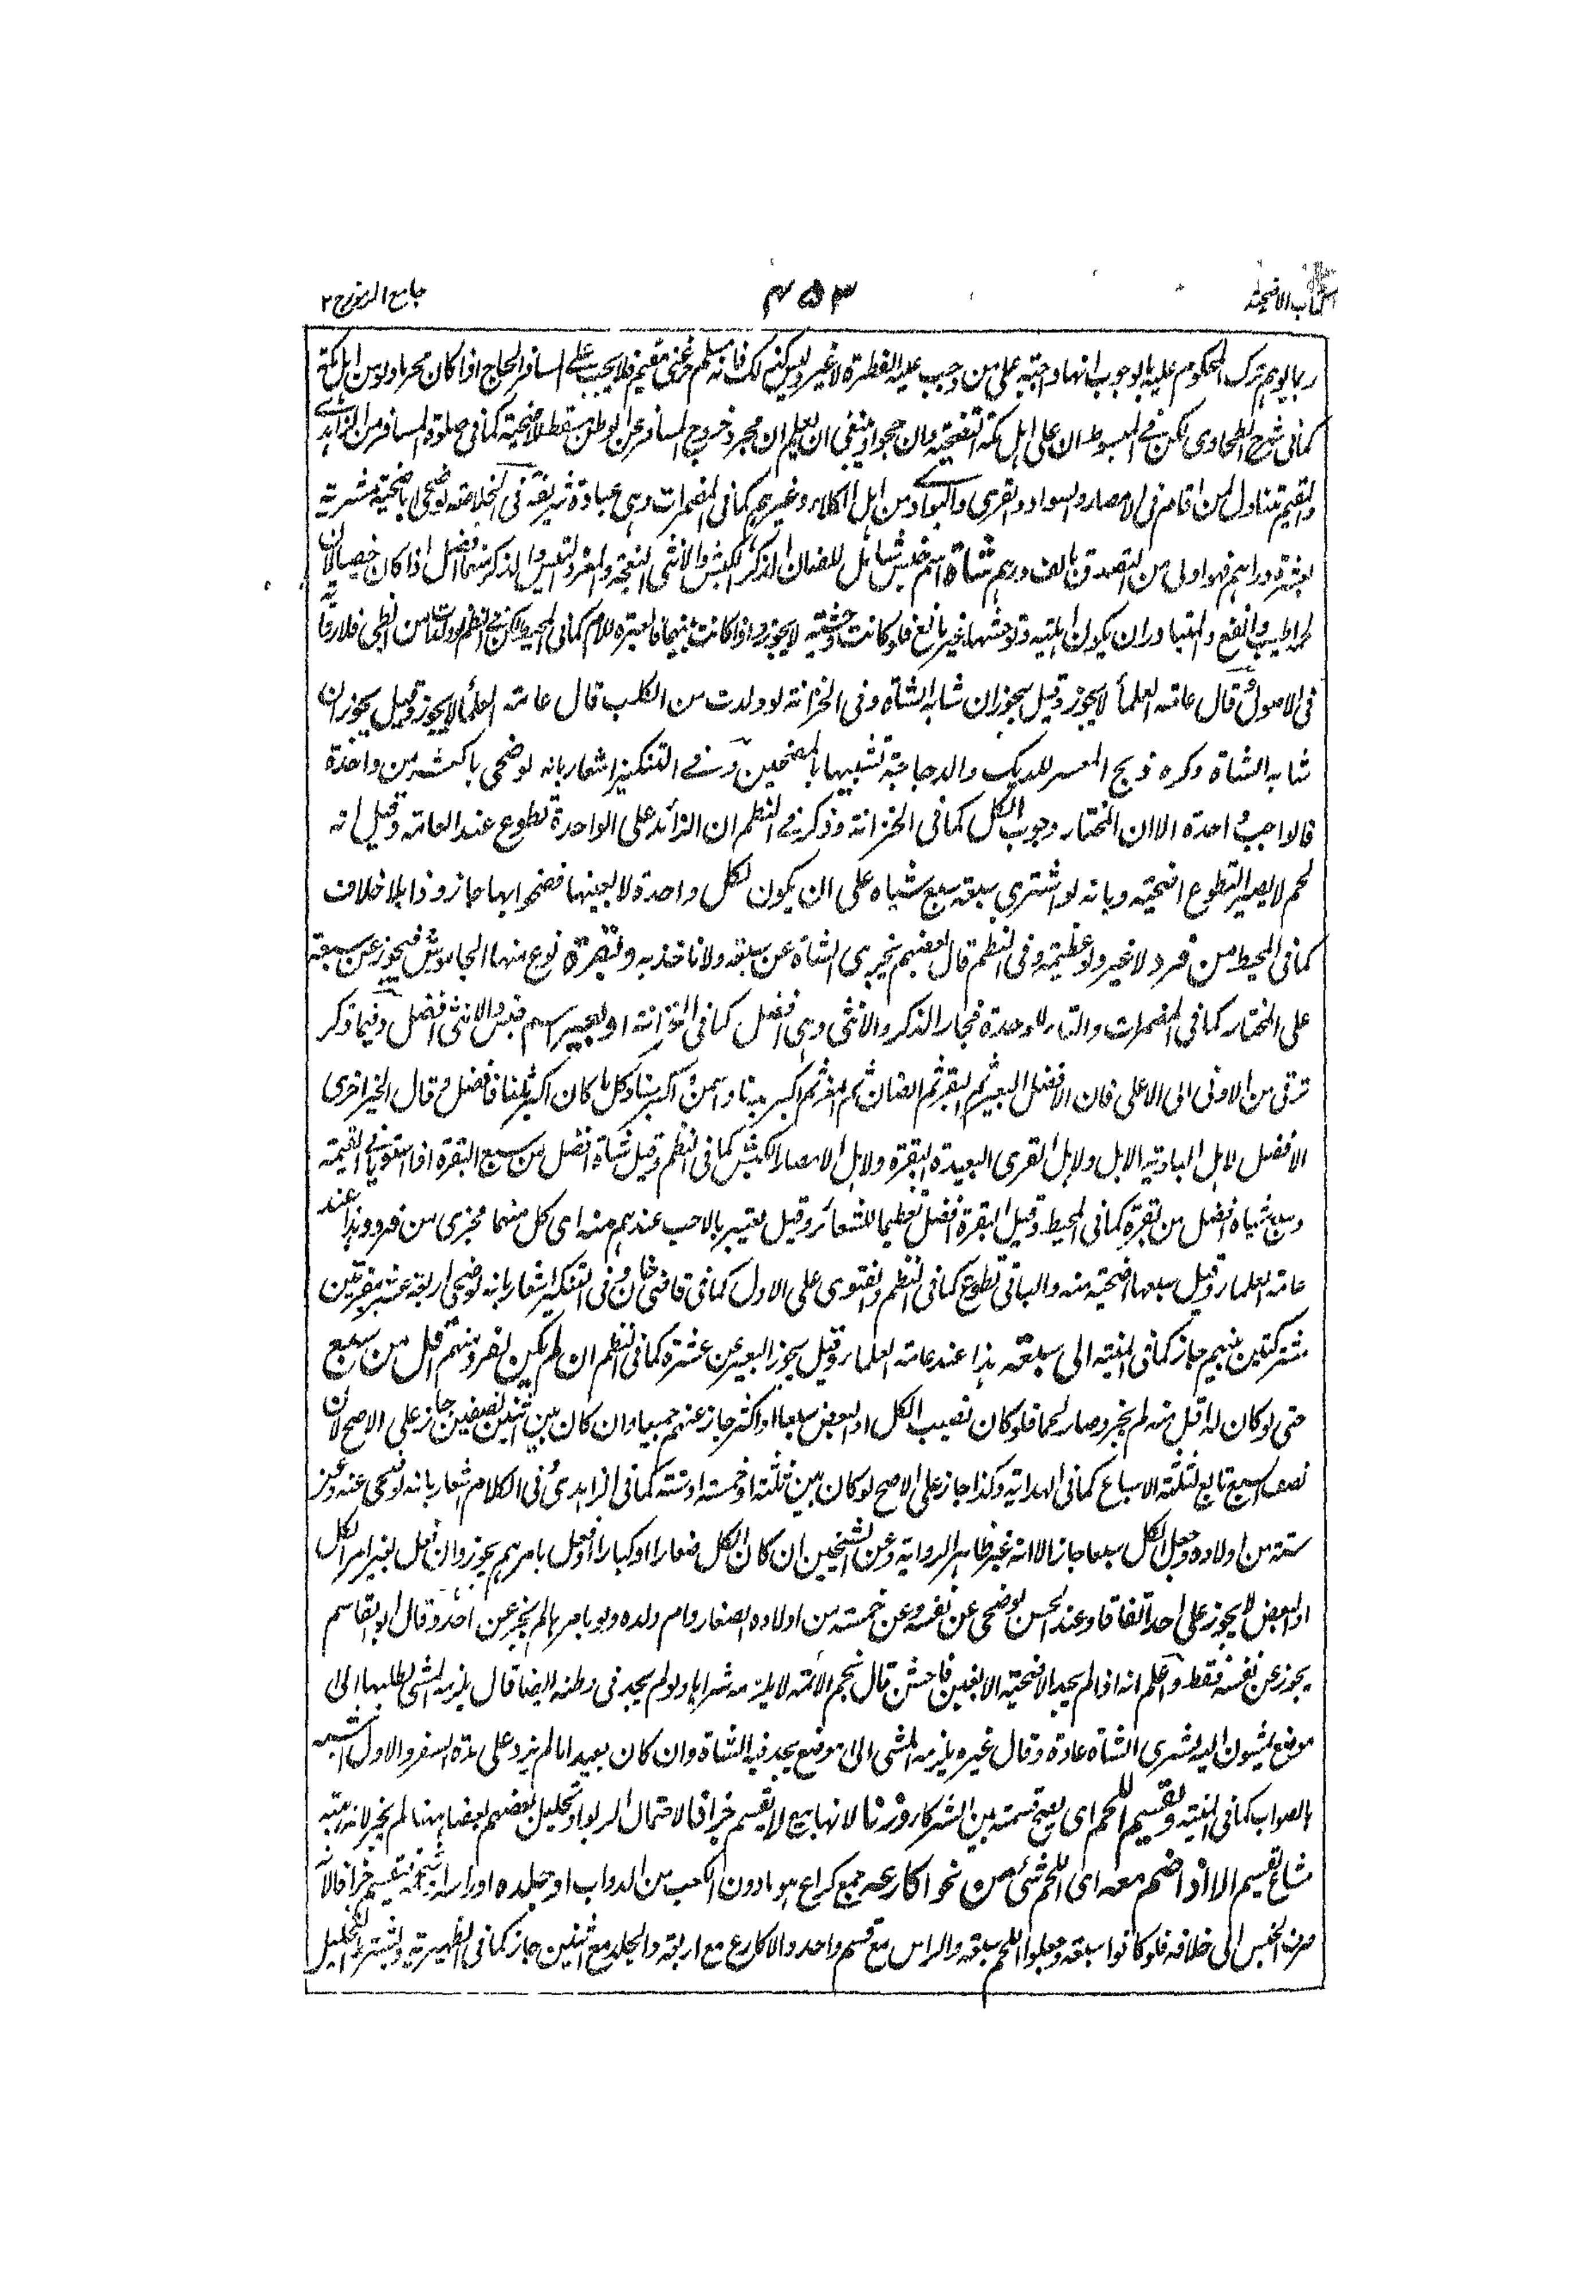 كتاب الاضحية
۴۵۳
جامع الرموز ج ۲
ربما يوهم ترك المحكوم عليه بالوجوب انها واجبة على من وجب عليه الفطرة لا غير وليس كذلك فانه مسلم حر غنى مقيم فلا يجب على المسافر والحاج اذا كان محرما ولو من اهل مكة
كما فى شرح الطحاوى لكن فى المبسوط ان على اهل مكة التضحية وان حجوا وينبغى ان يعلم ان مجرد خروج المسافر عن الوطن مسقط للاضحية كما فى صلوة المسافر من الزاهدى
والمقيم يتناول من اقام فى الامصار والسواد والقرى والبوادى من اهل الكلاء وغيرهم كما فى المضمرات وهى عبادة شريفة فى الخلاصة لو ضحى اضحية مشرية
بعشرة دراهم فهو اولى من التصدق بالف درهم شاة اسم جنس شامل للضان الذكر الكبش والانثى النعجة والمعز والتيس والذكر منهما افضل اذا كان خصيا لان
لحمه اطيب وانفع والمتبادر ان يكون اهلية وتوحشها غير مانع فلو كانت وحشية لا يجوز واذا كانت بينهما فالعبرة للام كما فى المحيط لكن فى النظم لو ولدت من الظبى فلا رواية
فى الاصول وقال عامة العلماء لا يجوز وقيل يجوز ان شابه الشاة وفى الخزانة لو ولدت من الكلب قال عامة العلماء لا يجوز وقيل يجوز ان
شابه الشاة وكره ذبح المعسر للديك والدجاجة تشبيها بالمضحين وفى التنكير اشعار بانه لو ضحى باكثر من واحدة
فالواجب واحدة الا ان المختار وجوب الكل كما فى الخزانة وذكر فى النظم ان الزائد على الواحدة تطوع عند العامة وقيل انه
لحم لا يصير التطوع اضحية وبانه لو اشترى سبعة سبع شياه على ان يكون لكل واحدة لا بعينها فضحوا بها جاز وذا بلا خلاف
كما فى المحيط من فرد لا غير ولو عظيمة وفى النظم قال بعضهم يجزى الشاة عن سبعة ولا ناخذ به وبقرة نوع منها الجاموس فيجوز عن سبعة
على المختار كما فى المضمرات والتاء للوحدة فجاز الذكر والانثى وهى افضل كما فى الخزانة او بعير اسم جنس والانثى افضل وفيما ذكر
ترقى من الادنى الى الاعلى فان الافضل البعير ثم البقر ثم الضان ثم المعز ثم اكبر بدنا واسمن واكبر سنا وكل ما كان اكثر ثمنا فافضل وقال الخيزاخزى
الافضل لاهل البادية الابل ولاهل القرى البعيدة البقرة ولاهل الامصار الكبش كما فى النظم وقيل شاة افضل من سبع البقرة اذا استويا فى القيمة
وسبع شياه افضل من بقرة كما فى المحيط وقيل البقرة افضل تعظيما للشعائر وقيل يعتبر بالاحب عندهم منه اى كل منهما مجزى من فرد وهذا عند
عامة العلماء وقيل سبعها اضحية منه والباقى تطوع كما فى النظم والفتوى على الاول كما فى قاضى خان وفى التنكير اشعار بانه لو ضحى اربعة عشر بقرتين
مشتركتين بينهم جاز كما فى المنية الى سبعة هذا عند عامة العلماء وقيل يجوز البعير عن عشرة كما فى النظم ان لم يكن لفرد منهم اقل من سبع
حتى لو كان له اقل منه لم يجز وصار لحما فلو كان نصيب الكل او البعض سبعا او اكثر جاز عنهم جميعا وان كان بين اثنين نصفين جاز على الاصح لان
نصف السبع تابع لثلثة الاسباع كما فى الهداية وكذا جاز على الاصح لو كان بين ثلثة او خمسة او ستة كما فى الزاهدى وفى الكلام اشعار بانه لو ضحى عنه وعن
ستة من اولاده وجعل الكل سبعا جاز الا انه غير ظاهر الرواية وعن الشيخين ان كان الكل صغارا او كبارا وفعل بامرهم يجوز وان فعل بغير امر الكل
او البعض لا يجوز على احد اتفاقا وعند الحسن لو ضحى عن نفسه وعن خمسة من اولاده الصغار وام ولده وهو بامرها لم يجز عن احد وقال ابو القاسم
يجوز عن نفسه فقط واعلم انه اذا لم يجد الاضحية الا بغبن فاحش قال نجم الائمة لا يلزمه شراها ولو لم يجد فى وطنه ايضا قال يلزمه المشى لطلبها الى
موضع يمشون اليه لشرى الشاة عادة وقال غيره يلزمه المشى الى موضع يجد فيه الشاة وان كان بعيدا ما لم يزد على مدة السفر والاول اشبه
بالصواب كما فى المنية ويقسم اللحم اى يصح قسمته بين الشركاء وزنا لانها بيع لا يقسم جزافا لاحتمال الربوا وتحليل بعضهم بعضا ههنا لم يجز لانه هبة
مشاع يقسم الا اذا ضم معه اى اللحم شئ من نحو اكارعه جمع كراع هو ما دون الكعب من الدواب او جلده او راسه فيقسم جزافا لانه
صرف الجنس الى خلافه فلو كانوا سبعة وجعلوا اللحم سبعة والراس مع قسم واحد والاكارع مع اربعة والجلد مع اثنين جاز كما فى الظهيرية ويشترط التحليل